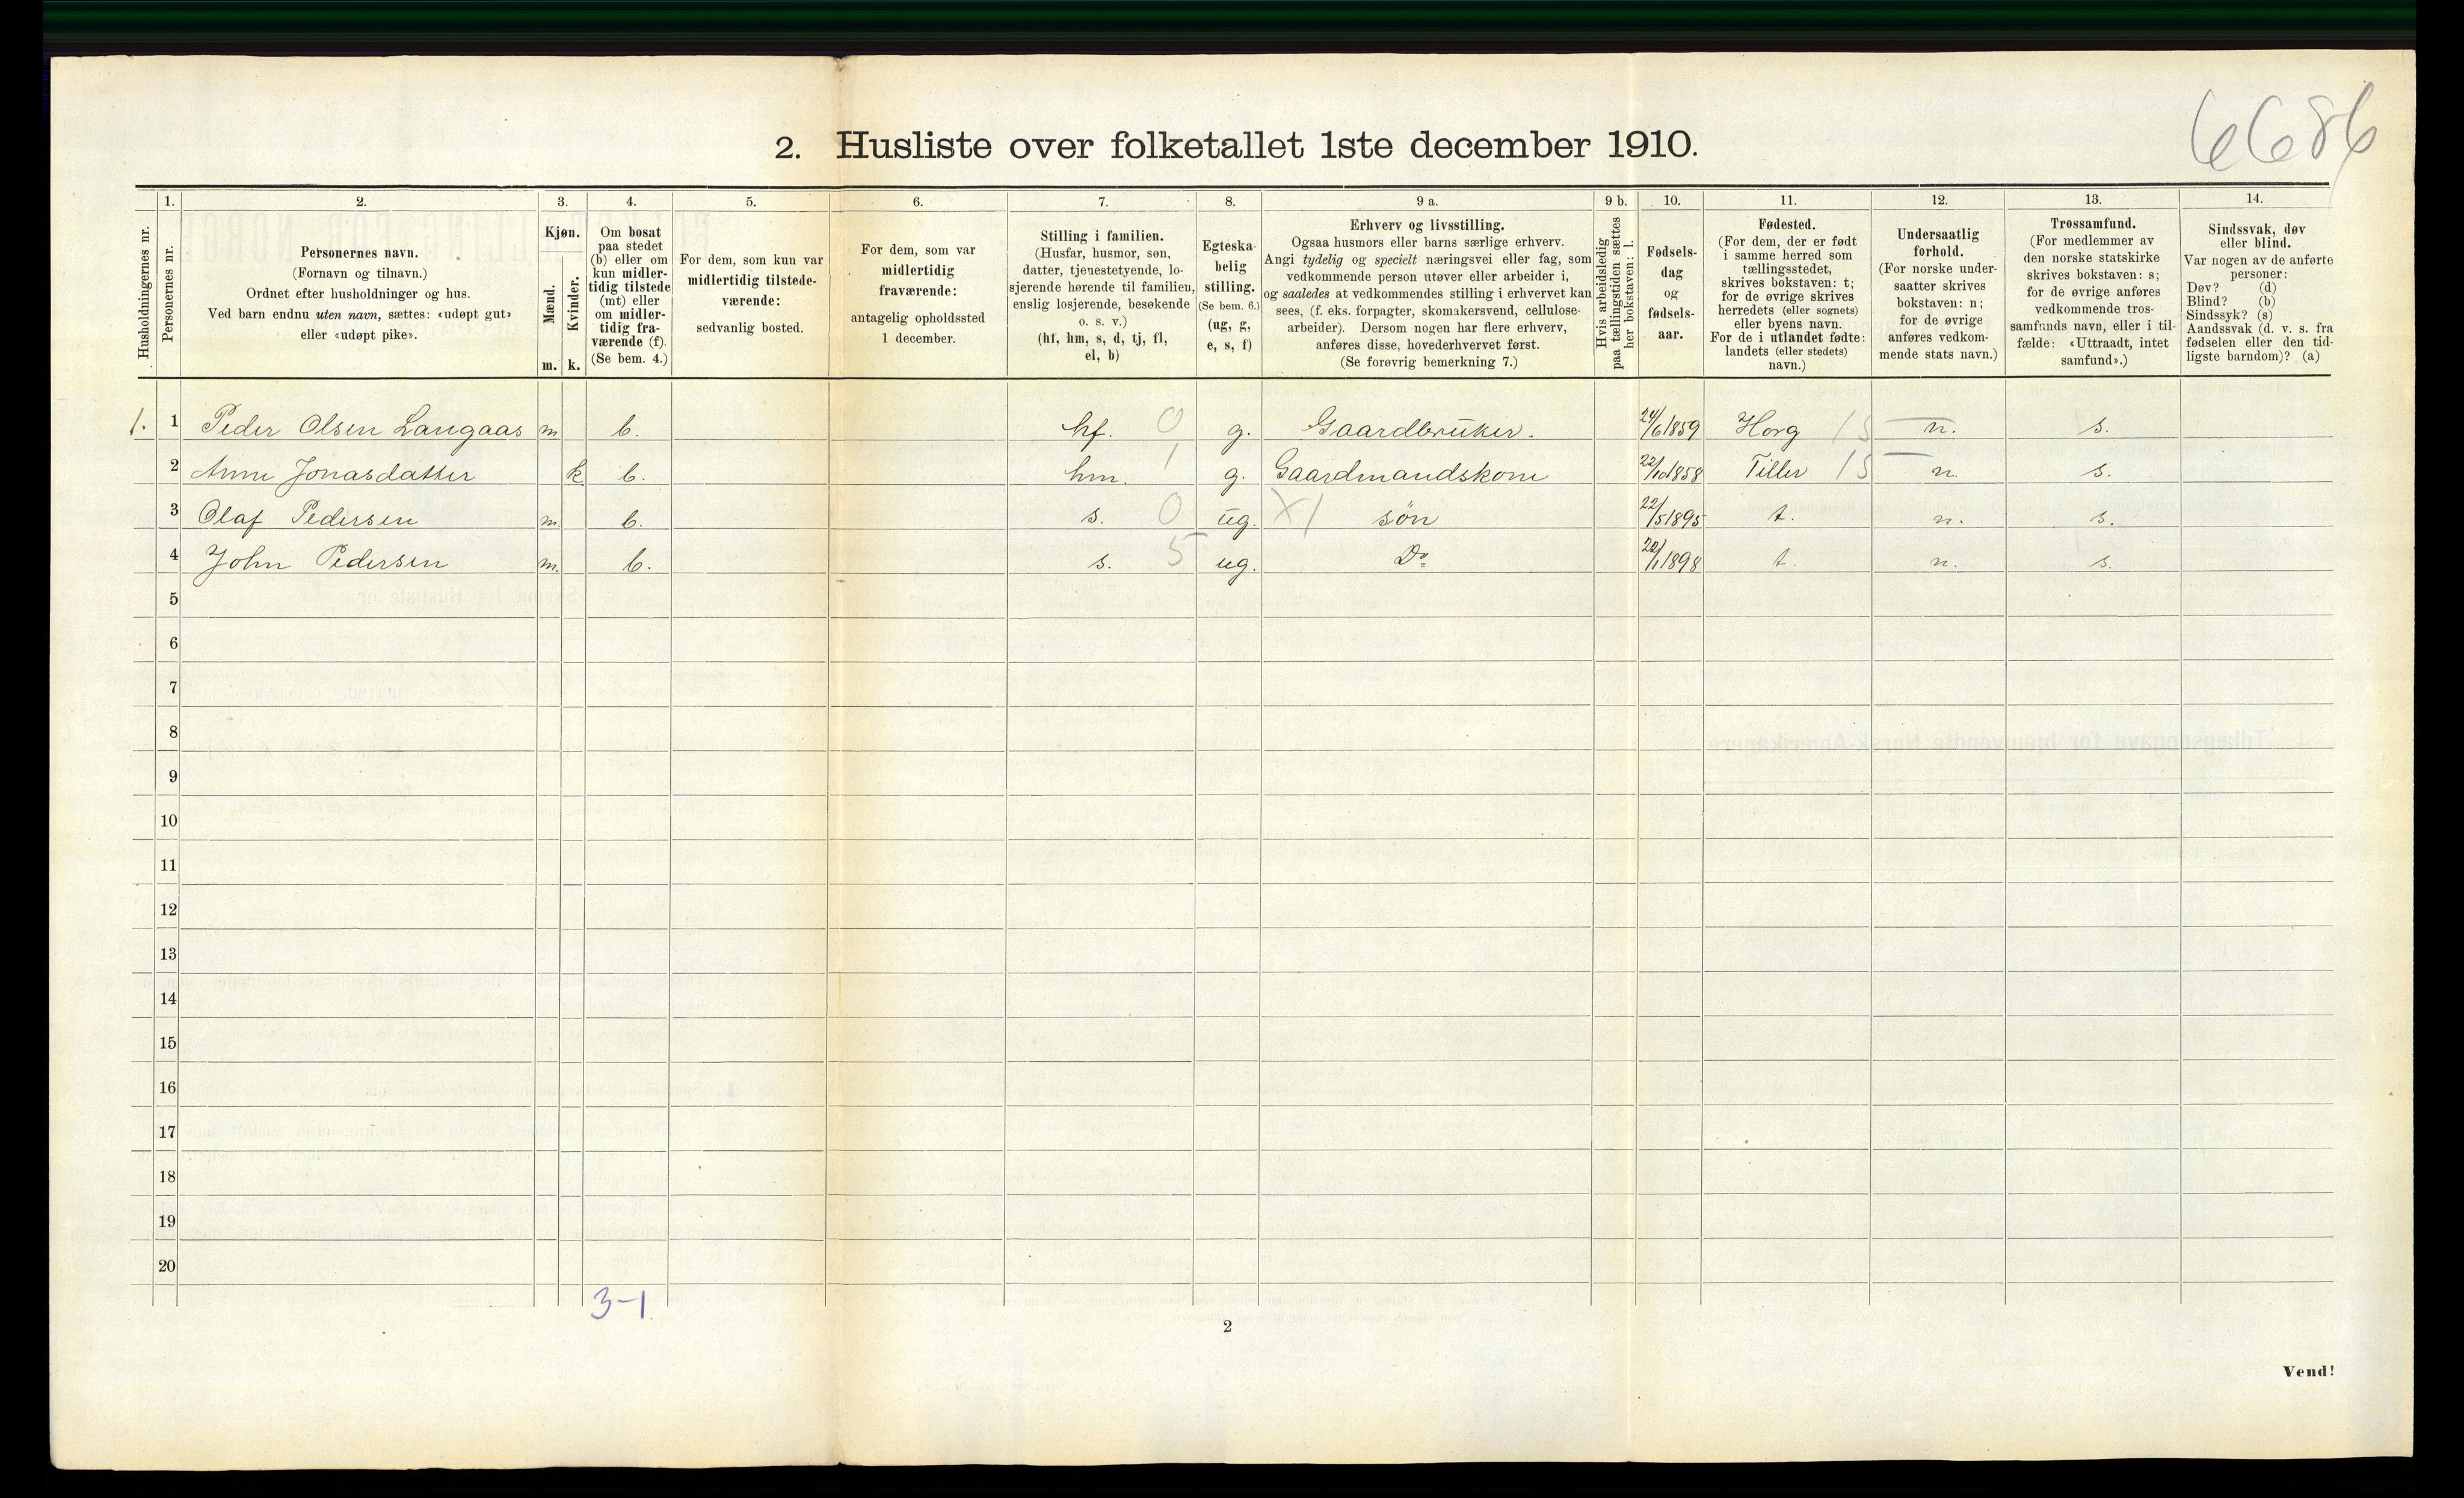 6686
2. Husliste over folketallet 1ste december 1910.
Husholdningernes nr.
1.
Personernes nr.
2.
Personernes navn.
(Fornavn og tilnavn.)
Ordnet efter husholdninger og hus.
Ved barn endnu uten navn, sættes: «udøpt gut»
eller «udøpt pike».
3.
Kjøn.
Mænd.
Kvinder.
m. k.
4.
Om bosat
paa stedet
(b) eller om
kun midler-
tidig tilstede
(mt) eller
om midler-
tidig fra-
værende (f).
(Se bem. 4.)
5.
For dem, som kun var
midlertidig tilstede-
værende:
sedvanlig bosted.
6.
For dem, som var
midlertidig
fraværende:
antagelig opholdssted
1 december.
7.
Stilling i familien.
(Husfar, husmor, søn,
datter, tjenestetyende, lo-
sjerende hørende til familien,
enslig losjerende, besøkende
o. s. v.)
(hf, hm, s, d, tj, fl,
el, b)
8.
Egteska-
belig
stilling.
(Se bem. 6.)
(ug, g,
e, s, f)
9 a.
Erhverv og livsstilling.
Ogsaa husmors eller barns særlige erhverv.
Angi tydelig og specielt næringsvei eller fag, som
vedkommende person utøver eller arbeider i,
og saaledes at vedkommendes stilling i erhvervet kan
sees, (f. eks. forpagter, skomakersvend, cellulose-
arbeider). Dersom nogen har flere erhverv,
anføres disse, hovederhvervet først.
(Se forøvrig bemerkning 7.)
9 b.
Hvis arbeidsledig
paa tællingstiden sættes
her bokstaven: l.
10.
Fødsels-
dag
og
fødsels-
aar.
11.
Fødested.
(For dem, der er født
i samme herred som
tællingsstedet,
skrives bokstaven: t;
for de øvrige skrives
herredets (eller sognets)
eller byens navn.
For de i utlandet fødte:
landets (eller stedets)
navn.)
12.
Undersaatlig
forhold.
(For norske under-
saatter skrives
bokstaven: n;
for de øvrige
anføres vedkom-
mende stats navn.)
13.
Trossamfund.
(For medlemmer av
den norske statskirke
skrives bokstaven: s;
for de øvrige anføres
vedkommende tros-
samfunds navn, eller i til-
fælde: «Uttraadt, intet
samfund».)
14.
Sindssvak, døv
eller blind.
Var nogen av de anførte
personer:
Døv? (d)
Blind? (b)
Sindssyk? (s)
Aandssvak (d. v. s. fra
fødselen eller den tid-
ligste barndom)? (a)
1. 1 Peder Olsen Langaas m b. hf. 0 g. Gaardbruker. 24/6 1859 Horg 15 n. s.
2 Anne Jonasdatter k b. hm. 1 g. Gaardmandskone 22/10 1858 Tiller 15 n. s.
3 Olaf Pedersen m. b. s. 0 ug. X1 søn 22/5 1895 t. n. s.
4 John Pedersen m. b. s. 5 ug. Do 1898 t. n. s.
5
6
7
8
9
10
11
12
13
14
15
16
17
18
19
20
3-1
2
Vend!